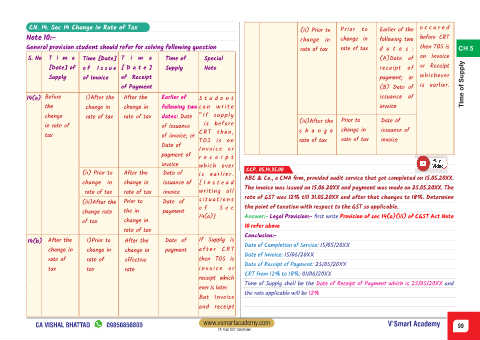 CH. 14. Sec 14 Change in Rate of Tax
Note 10:-
General provision student should refer for solving following question
S. No Time [Date] of Supply Time [Date] of Issue of Invoice Time [Date] of Receipt of Payment Time of Supply Special Note
14(a) Before the change in rate of tax
(i)After the change in rate of tax
After the change in rate of tax
Earlier of following two dates: Date of issuance of invoice, or Date of payment of invoice
Student can write "If supply is before CRT then, TOS is on Invoice or receipt which ever is earlier. [Instead writing all situations of Sec 14(a)]
(ii) Prior to change in rate of tax
After the change in rate of tax
Date of issuance of invoice
(iii)After the change rate of tax
Prior to the in change in rate of tax
Date of payment
14(b) After the change in rate of tax
(i)Prior to change in rate of tax
After the change in effective rate
Date of payment
If Supply is after CRT then TOS is invoice or receipt which ever is later.
But Invoice and receipt
(ii) Prior to change in rate of tax
Prior to change in rate of tax
Earlier of the following two dates: (A)Date of receipt of payment; or (B) Date of issuance of invoice
occurred before CRT then TOS is on Invoice or Receipt whichever is earlier.
(iii)After the change rate of tax
Prior to change in rate of tax
Date of issuance of invoice
CCP. 05.14.15.00
ABC & Co., a CMA firm, provided audit service that got completed on 15.05.20XX.
The invoice was issued on 15.06.20XX and payment was made on 25.05.20XX. The
rate of GST was 12% till 31.05.20XX and after that changes to 18%. Determine
the point of taxation with respect to the GST as applicable.
Answer:- Legal Provision:- first write Provision of sec 14(a)(iii) of CGST Act Note
10 refer above
Conclusion:-
Date of Completion of Service: 15/05/20XX
Date of Invoice: 15/06/20XX
Date of Receipt of Payment: 25/05/20XX
CRT from 12% to 18%: 01/06/20XX
Time of Supply shall be the Date of Receipt of Payment which is 25/05/20XX and
the rate applicable will be 12%
CH 5
Time of Supply
CA VISHAL BHATTAD 09850850800
www.vsmartacademy.com
V'Smart Academy